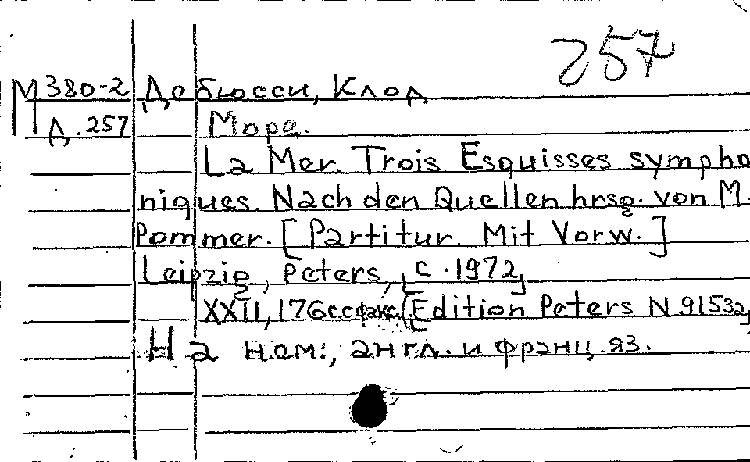 257
М380-2 Дебюсси, Клод
Д.257 Море.
La Mer. Trois Esquisses sympho
niques. Nach den Quellen hrsg. von M.
Pommer. [Partitur. Mit Vorw.]
Leipzig, Peters, [c. 1972]
XXII, 176с (Edition Peters N 9153a,
На нем., англ. и франц. яз.